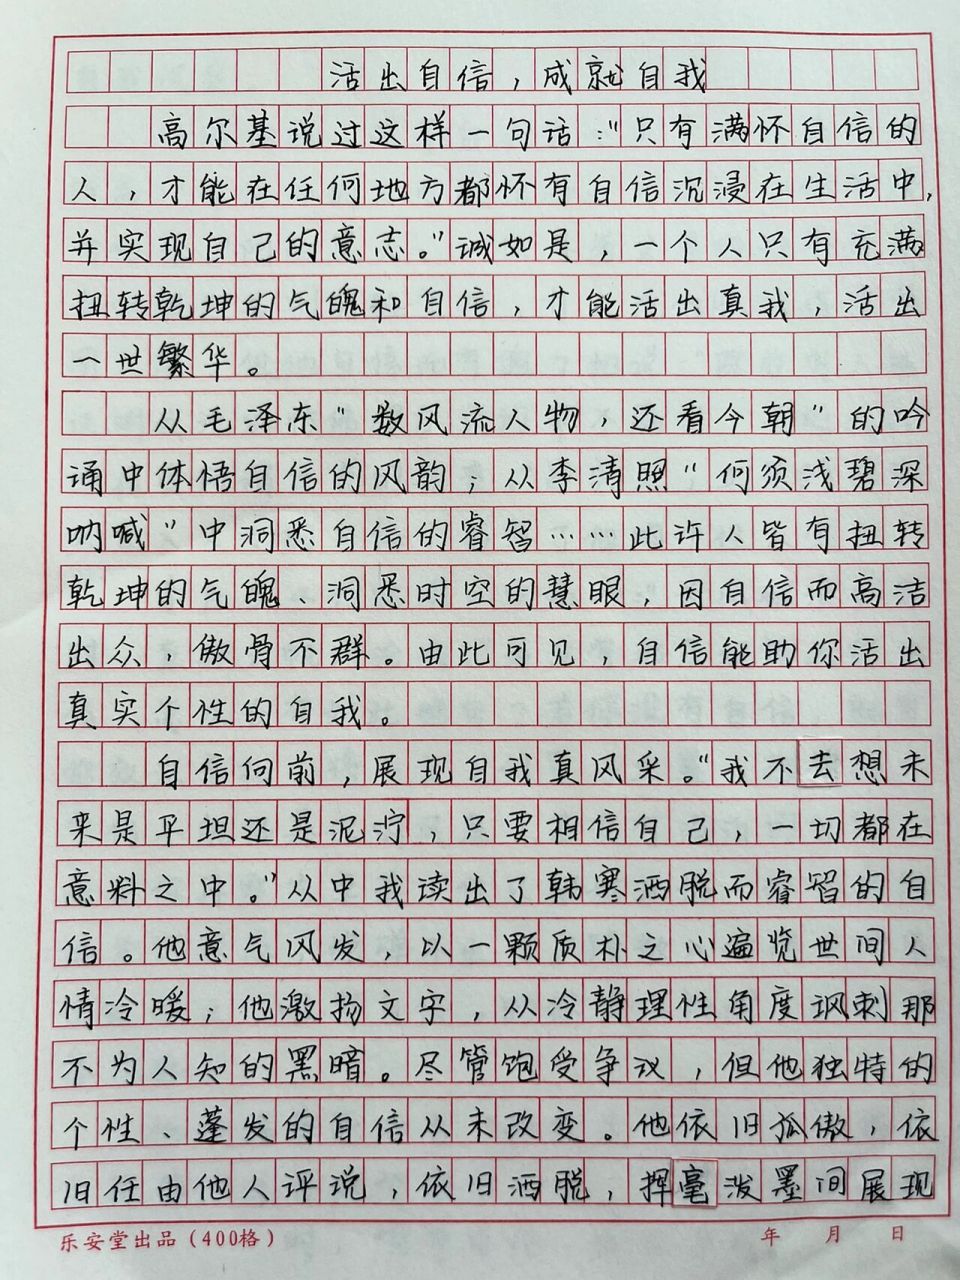 活出自信，成就自我
高尔基说过这样一句话：“只有满怀自信的
人，才能在任何地方都怀有自信沉浸在生活中，
并实现自己的意志。”诚如是，一个人只有充满
扭转乾坤的气魄和自信，才能活出真我，活出
一世繁华。
从毛泽东“数风流人物，还看今朝”的吟
诵中体悟自信的风韵；从李清照“何须浅碧深
呐喊”中洞悉自信的睿智……此许人皆有扭转
乾坤的气魄、洞悉时空的慧眼，因自信而高洁
出众，傲骨不群。由此可见，自信能助你活出
真实个性的自我。
自信向前，展现自我真风采。“我不去想未
来是平坦还是泥泞，只要相信自己，一切都在
意料之中。”从中我读出了韩寒洒脱而睿智的自
信。他意气风发，以一颗质朴之心遍览世间人
情冷暖；他激扬文字，从冷静理性角度讽刺那
不为人知的黑暗。尽管饱受争议，但他独特的
个性、蓬发的自信从未改变。他依旧孤傲，依
旧任由他人评说，依旧洒脱，挥毫泼墨间展现
乐安堂出品（400格） 年 月 日